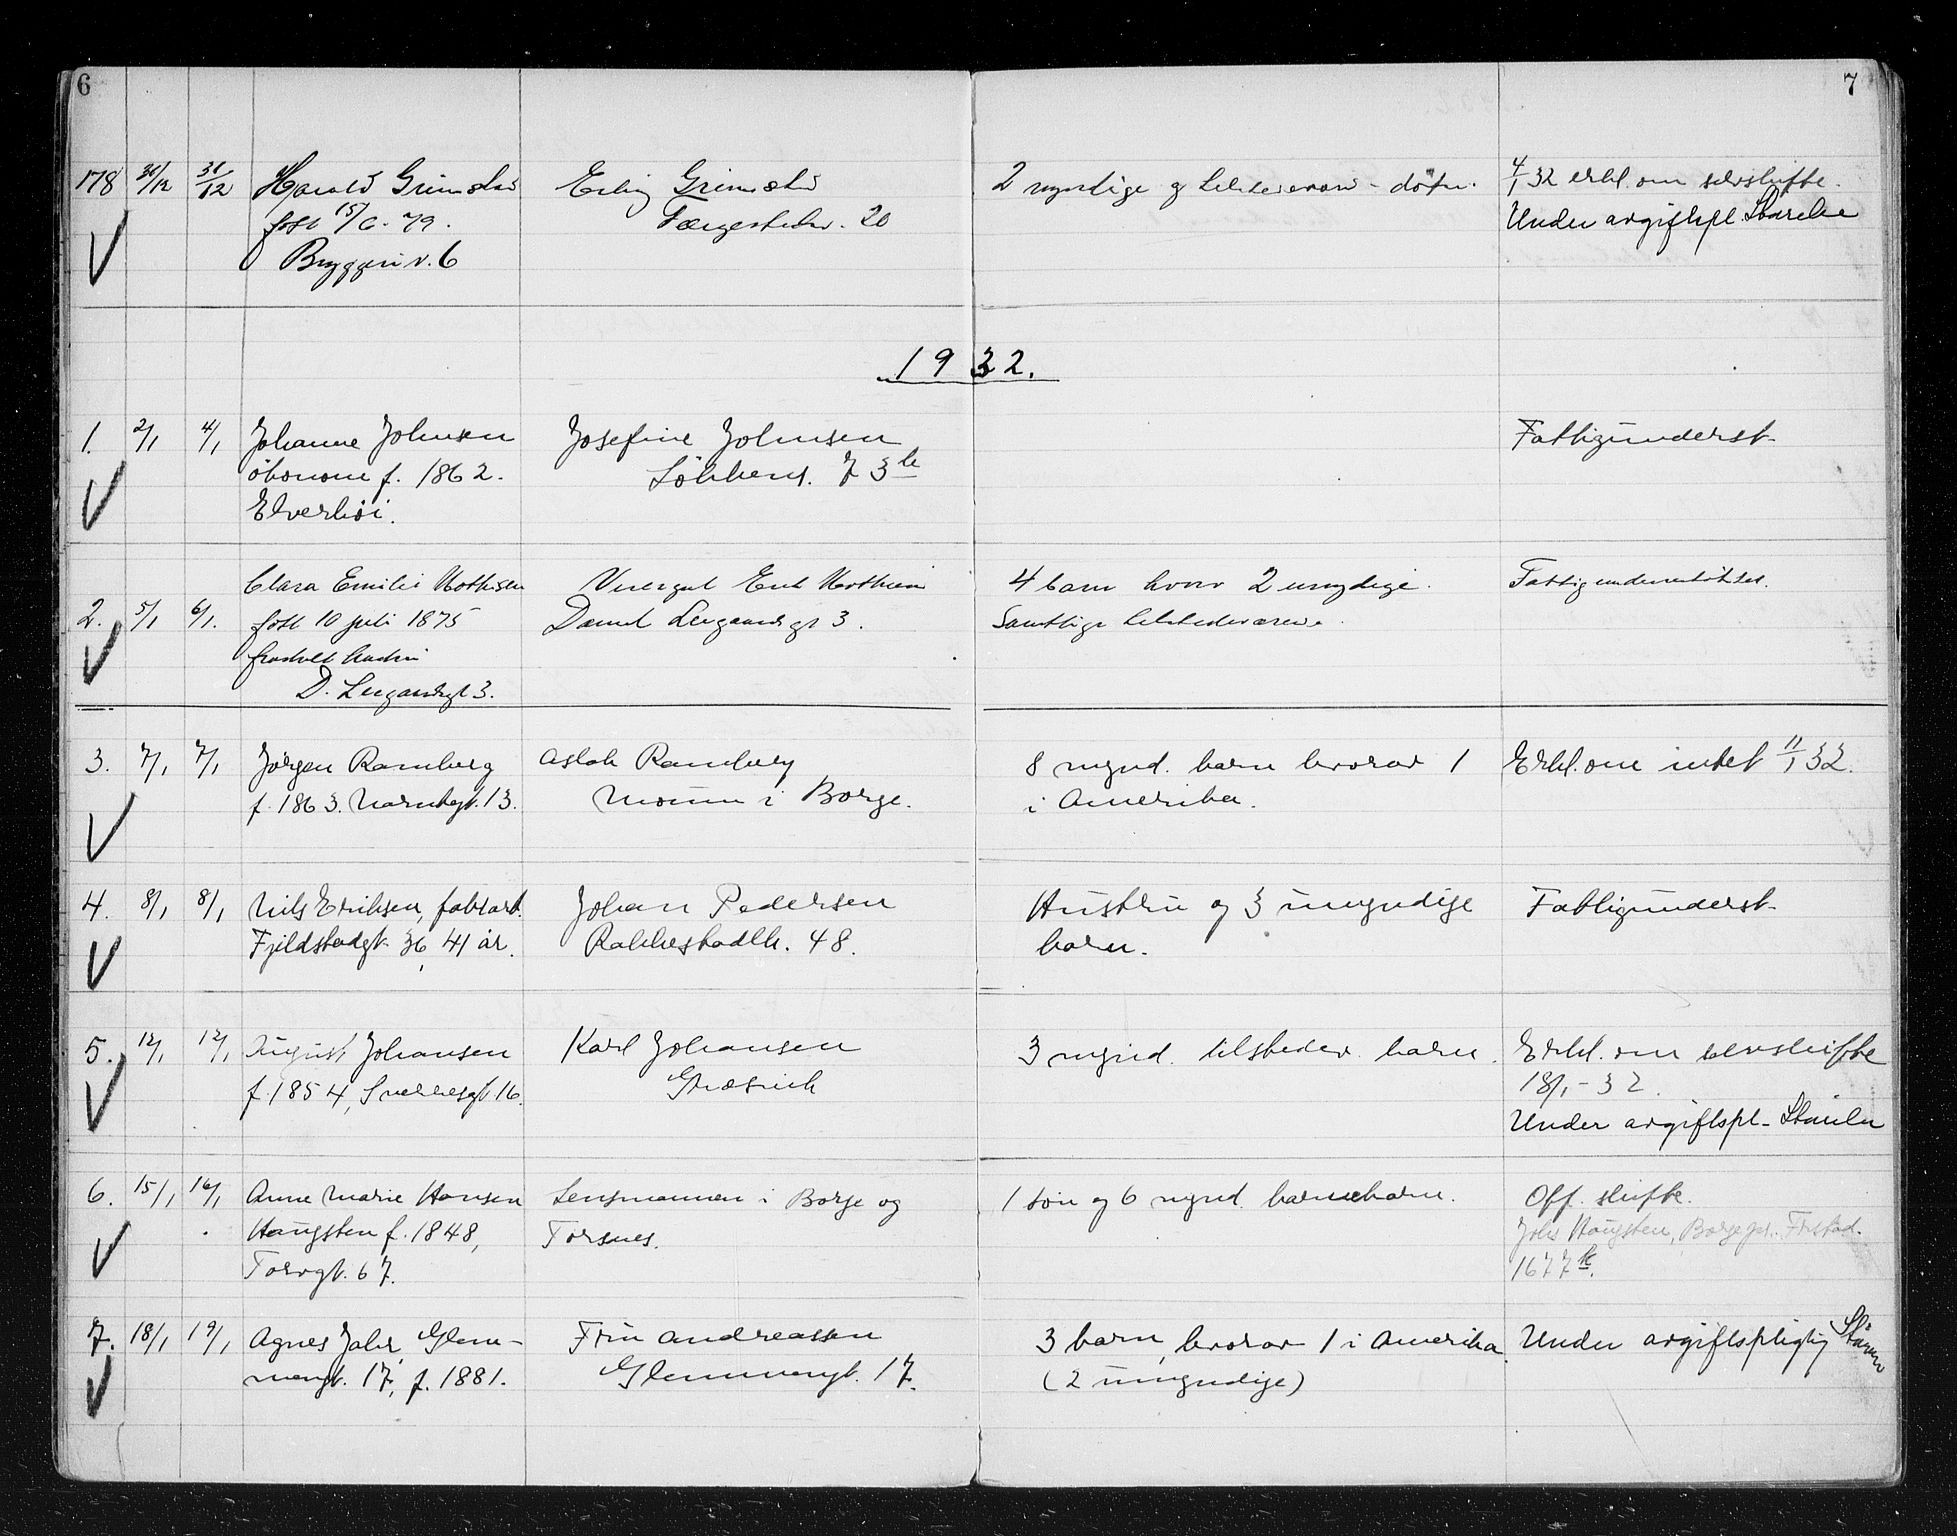 6
7
178 30/12 31/12 Harald Grimstad
født 15/6. 79.
Bryggeriv. 6
Erling Grimstad
Færgestedsv. 20
2 myndige og tilstedeværende døtre.
4/1 32 erkl. om selvskifte.
Under avgiftspl. Størrelse
1932.
1. 2/1 4/1 Johanne Johnsen
økonome f. 1862.
Elverhøi.
Josefine Johnsen
Løkkens. 73 b
Fattigunderst.
2. 5/1 6/1. Clara Emilie Mathisen
født 10 juli 1875
fraskilt hustru
D. Leegaardsgt 3.
Visergut Erik Mathisen
Daniel Leegaardsgt 3.
4 barn hvorav 2 umyndige.
Samtlige tilstedeværende.
Fattigunderstøttet.
3. 7/1 7/1 Jørgen Ramberg
f. 1863. Narntegt. 13.
Aslak Ramberg
Moum i Borge.
8 mynd. barn hvorav 1
i Amerika.
Erkl. om intet 11/1 32.
4. 8/1 8/1 Nils Eriksen, fabrarb.
Fjeldstadgt. 36, 41 år.
Johan Pedersen
Rakkestadbk. 48.
Hustru og 3 umyndige
barn.
Fattigunderst.
5. 12/1 12/1 August Johansen
f. 1854, Sverresgt 16.
Karl Johansen
Græsvik
3 mynd. tilstedev. barn.
Erkl. om selvskifte
18/1 - 32.
Under avgiftspl. Størrelse
6. 15/1 16/1 Anne Marie Hansen
Haugsten f. 1848,
Torvgt. 67.
Lensmannen i Borge og
Torsnes.
1 søn og 6 mynd. barnebarn.
Off. skifte.
Johs Haugsten, Borge pr. Frstad.
1677 k.
7. 18/1 19/1 Agnes Jahr, Glem-
mengt. 17, f. 1881.
Fru Andreassen
Glemmengt. 17.
3 barn, hvorav 1 i Amerika
(2 umyndige)
Under avgiftspligtig Størrelse